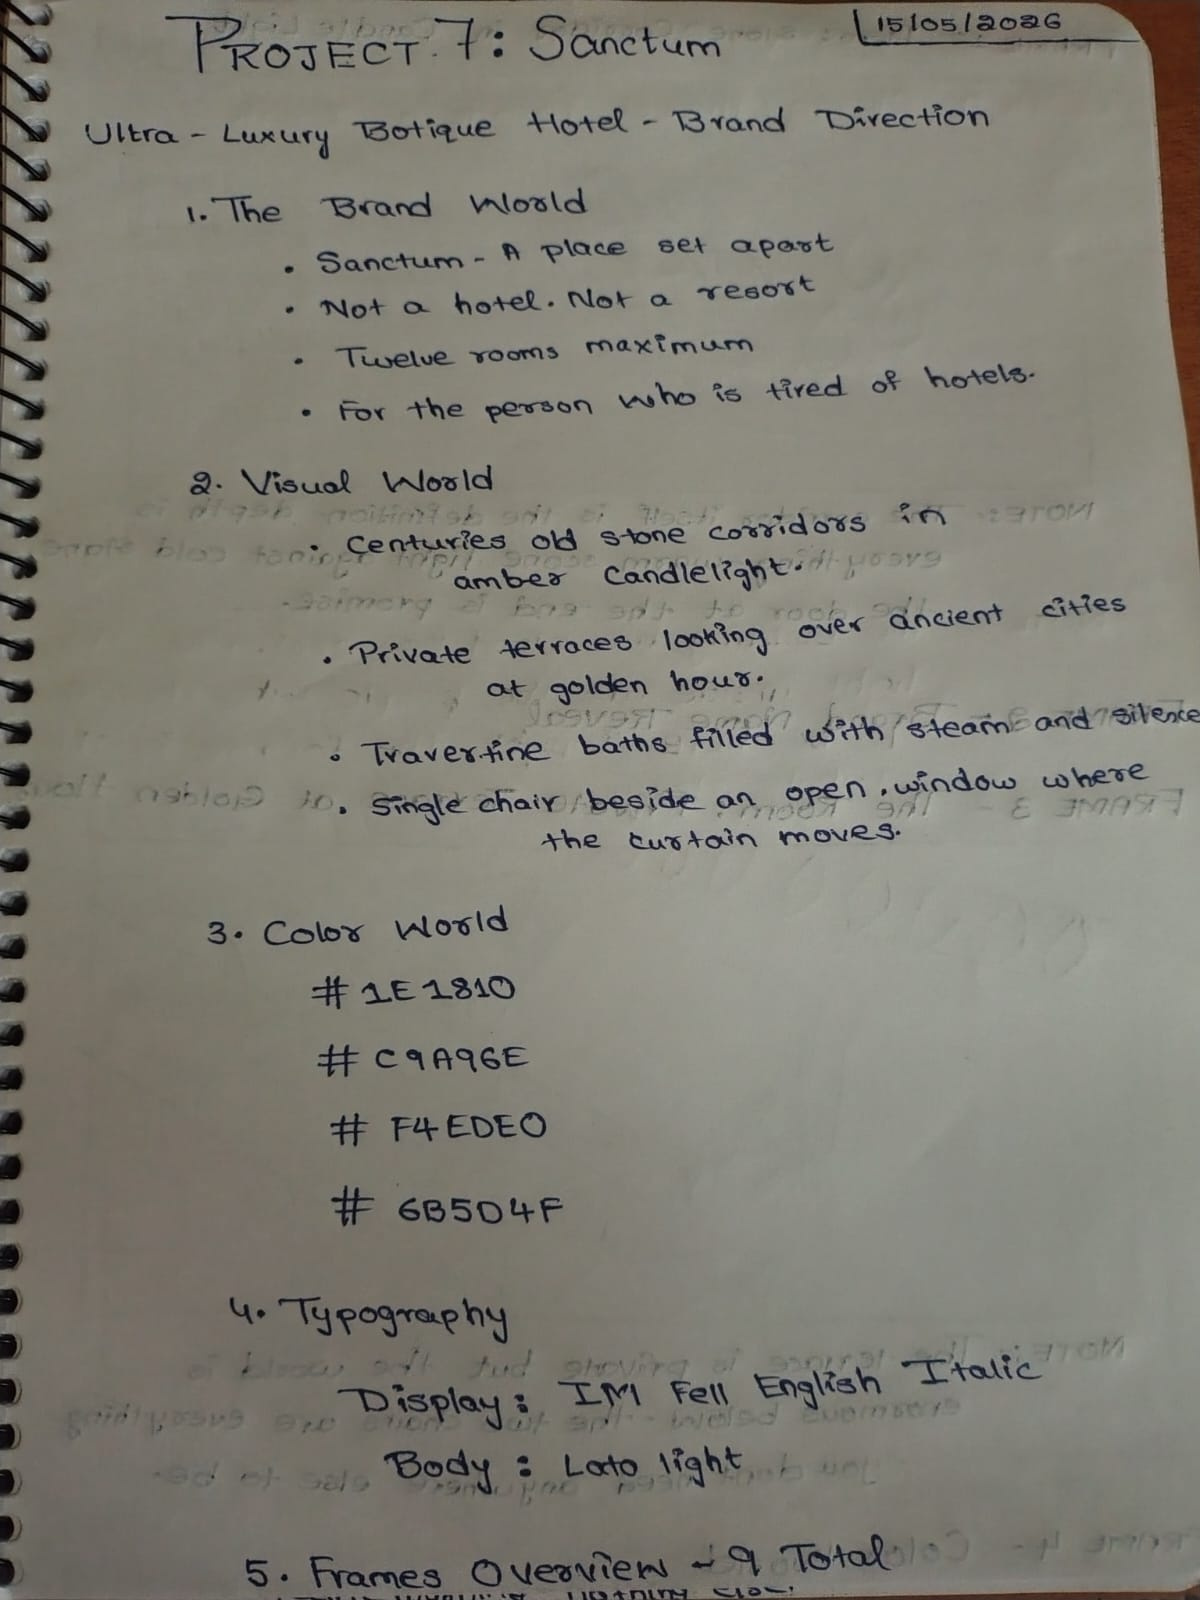 PROJECT. 7: Sanctum
15/05/2026
Ultra - Luxury Botique Hotel - Brand Direction
1. The Brand World
• Sanctum - A place set apart
• Not a hotel. Not a resort
• Twelve rooms maximum
• For the person who is tired of hotels.
2. Visual World
• Centuries old stone corridors in
amber candlelight.
• Private terraces looking over ancient cities
at golden hour.
• Travertine baths filled with steam and silence
• Single chair beside an open window where
the curtain moves.
3. Color World
# 1E1810
# C9A96E
# F4EDE0
# 6B5D4F
4. Typography
Display: IM Fell English Italic
Body: Lato light
5. Frames Overview - 9 Total